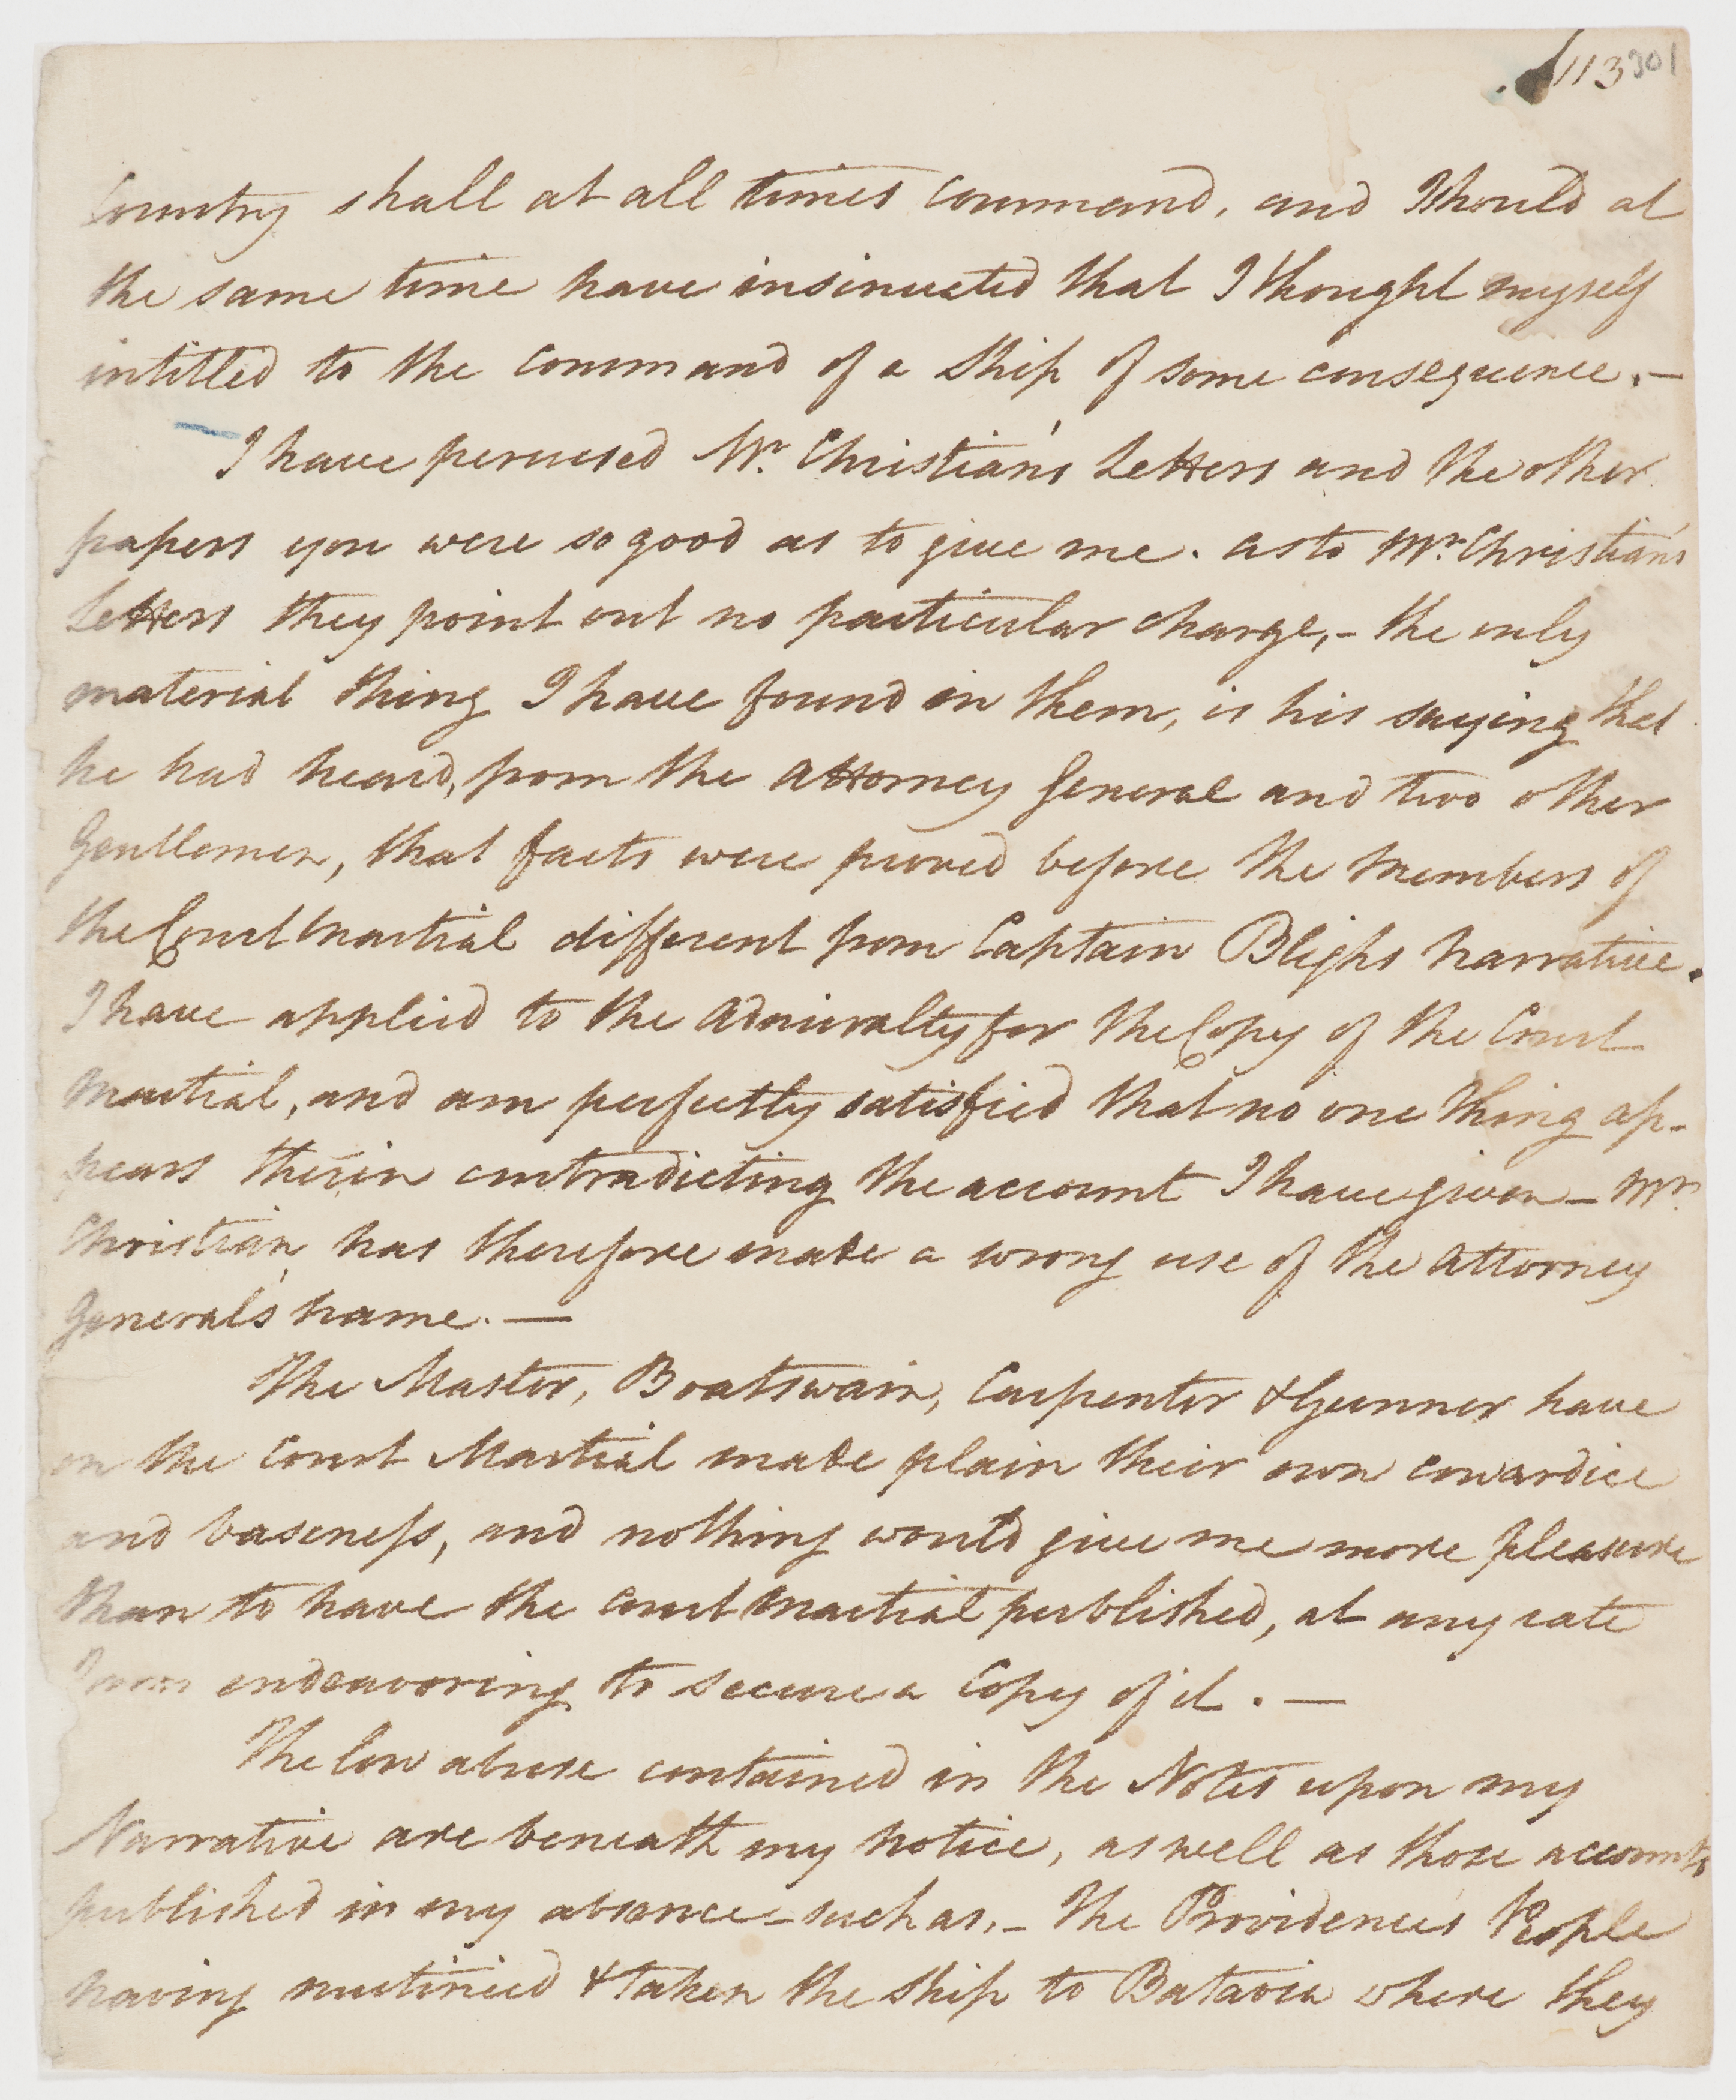 113 301
Country shall at all times command, and I should at
the same time have insinuated that I thought myself
intitled to the command of a Ship of some consequence.—
I have perused Mr. Christian's Letters and the other
papers you were so good as to give me. as to Mr. Christian's
Letters they point out no particular charge,- the only
material thing I have found in them, is his saying that
he had heard, from the Attorney General and two other
Gentlemen, that facts were proved before the Members of
the Court Martial different from Captain Blighs Narrative.
I have applied to the Admiralty for the Copy of the Court
Martial, and am perfectly satisfied that no one thing ap-
pears therin contradicting the account I have given — Mr.
Christian, has therefore made a wrong use of the Attorney
General's name. —
The Master, Boatswain, Carpenter & Gunner have
on the Court Martial made plain their own cowardice
and baseness, and nothing would give me more pleasure
than to have the Court Martial published, at any rate
I am endeavoring to secure a Copy of it. —
The low abuse contained in the Notes upon my
Narrative are beneath my notice, as well as those accounts
published in my absence - such as, - The Providences People
having mutinied & taken the ship to Batavia where they